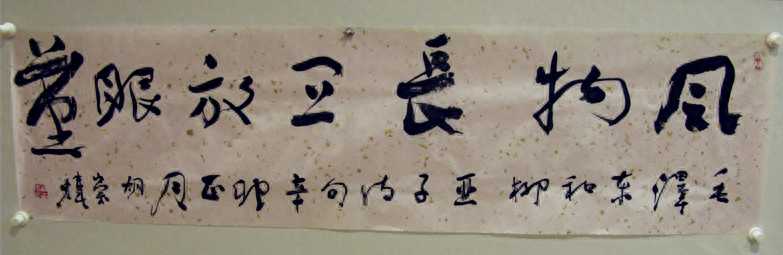 风物長宜放眼量
毛澤东和柳亚子诗句辛卯正月胡崇煒